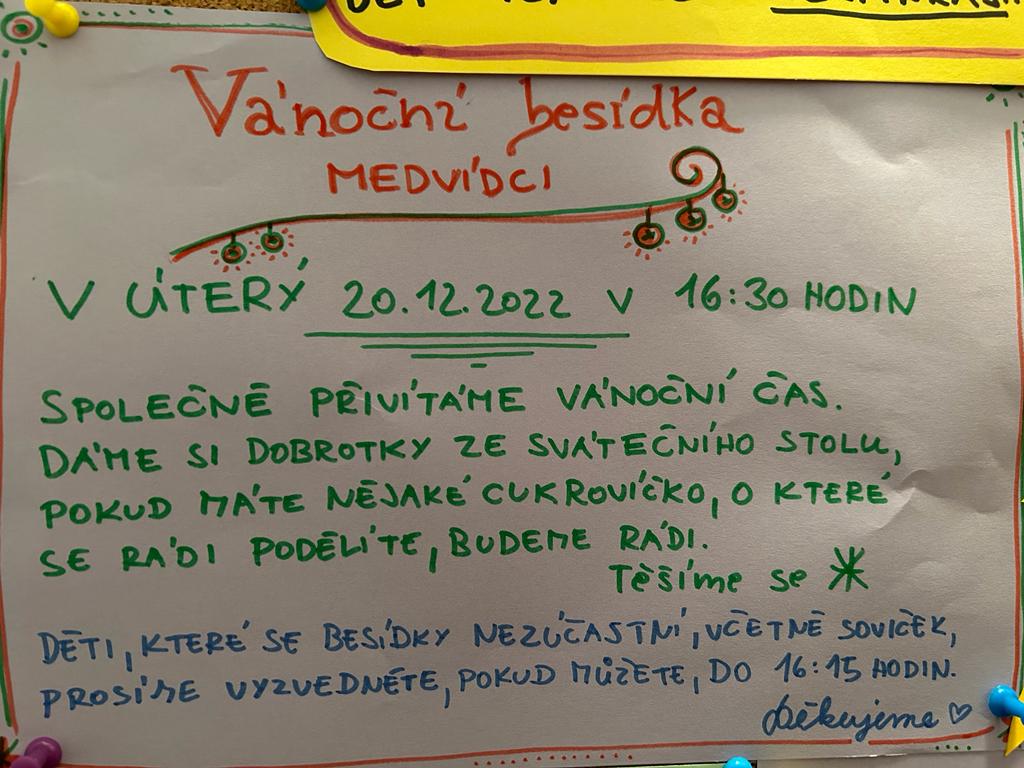 Vánoční besídka
MEDVÍDCI
V ÚTERÝ 20.12.2022 V 16:30 HODIN
SPOLEČNĚ PŘIVÍTÁME VÁNOČNÍ ČAS.
DÁME SI DOBROTKY ZE SVÁTEČNÍHO STOLU,
POKUD MÁTE NĚJAKÉ CUKROVÍČKO, O KTERÉ
SE RÁDI PODĚLÍTE, BUDEME RÁDI.
Těšíme se
DĚTI, KTERÉ SE BESÍDKY NEZÚČASTNÍ, VČETNĚ SOVIČEK,
PROSÍME VYZVEDNĚTE, POKUD MŮŽETE, DO 16:15 HODIN.
Děkujeme ♡